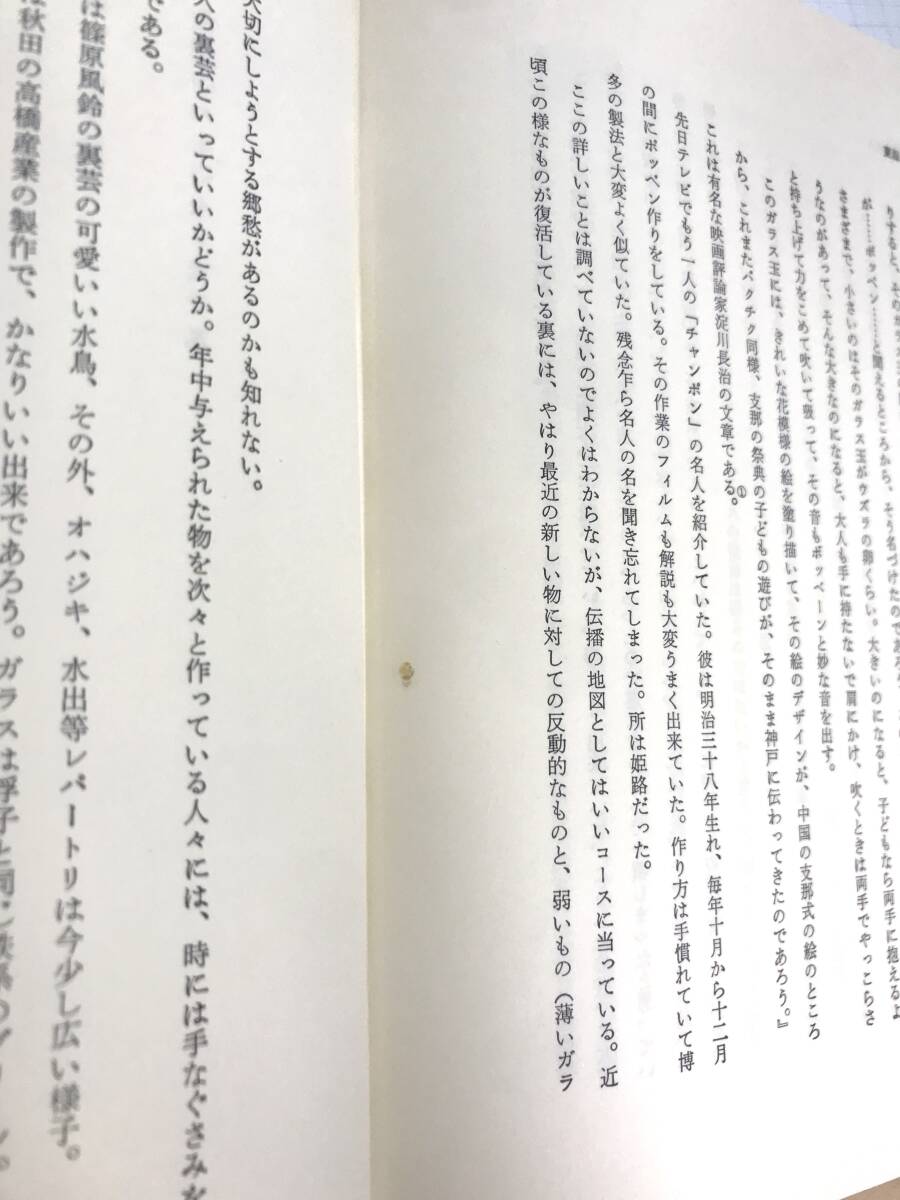 りすると、その
が……ポッペン……と聞えるところから、そう名づけたのであろう
さまざまで、小さいのはそのガラス玉がウズラの卵くらい。大きいのになると、子どもなら両手に抱えるよ
うなのがあって、そんな大きなのになると、大人も手に持たないで肩にかけ、吹くときは両手でやっこらさ
と持ち上げて力をこめて吹いて吸って、その音もポッペーンと妙な音を出す。
このガラス玉には、きれいな花模様の絵を塗り描いて、その絵のデザインが、中国の支那式の絵のところ
から、これまたバクチク同様、支那の祭典の子どもの遊びが、そのまま神戸に伝わってきたのであろう。』
これは有名な映画評論家淀川長治の文章である。①
先日テレビでもう一人の「チャンポン」の名人を紹介していた。彼は明治三十八年生れ、毎年十月から十二月
の間にポッペン作りをしている。その作業のフィルムも解説も大変うまく出来ていた。作り方は手慣れていて博
多の製法と大変よく似ていた。残念乍ら名人の名を聞き忘れてしまった。所は姫路だった。
ここの詳しいことは調べていないのでよくはわからないが、伝播の地図としてはいいコースに当っている。近
頃この様なものが復活している裏には、やはり最近の新しい物に対しての反動的なものと、弱いもの（薄いガラ
大切にしようとする郷愁があるのかも知れない。
人の裏芸といっていいかどうか。年中与えられた物を次々と作っている人々には、時には手なぐさみを
である。
は篠原風鈴の裏芸の可愛いい水鳥、その外、オハジキ、水出等レパートリは今少し広い様子。
は秋田の高橋産業の製作で、かなりいい出来であろう。ガラスは浮子と同じ